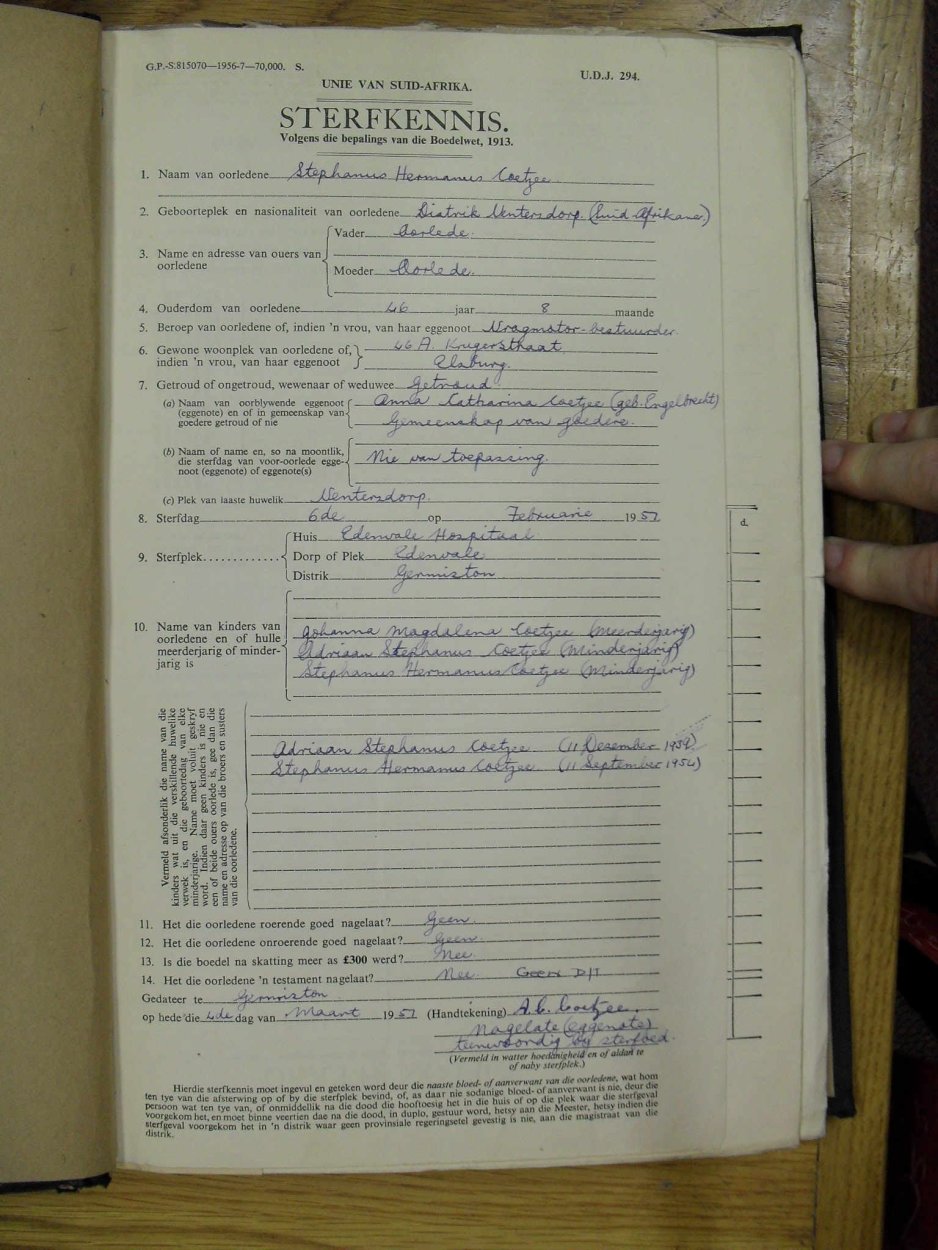 G.P.-S.815070—1956-7—70,000. S.
U.D.J. 294.
UNIE VAN SUID-AFRIKA.
STERFKENNIS.
Volgens die bepalings van die Boedelwet, 1913.
1. Naam van oorledene Stephanus Hermanus Coetzee
2. Geboorteplek en nasionaliteit van oorledene Distrik Ventersdorp. (Suid Afrikaner)
3. Name en adresse van ouers van oorledene
Vader Oorlede.
Moeder Oorlede.
4. Ouderdom van oorledene 46 jaar 8 maande
5. Beroep van oorledene of, indien 'n vrou, van haar eggenoot Vragmotor-bestuurder
6. Gewone woonplek van oorledene of, 46 A. Krugerstraat
indien 'n vrou, van haar eggenoot Elsburg.
7. Getroud of ongetroud, wewenaar of weduwee Getroud
(a) Naam van oorblywende eggenoot Anna Catharina Coetzee (geb. Engelbrecht)
(eggenote) en of in gemeenskap van
goedere getroud of nie Gemeenskap van goedere.
(b) Naam of name en, so na moontlik,
die sterfdag van voor-oorlede egge- Nie van toepassing.
noot (eggenote) of eggenote(s)
(c) Plek van laaste huwelik Ventersdorp.
8. Sterfdag 6de op Februarie 1957
9. Sterfplek
Huis Edenvale Hospitaal
Dorp of Plek Edenvale
Distrik Germiston
d.
10. Name van kinders van
oorledene en of hulle Johanna Magdalena Coetzee (Meerderjarig)
meerderjarig of minder- Adriaan Stephanus Coetzee (Minderjarig)
jarig is Stephanus Hermanus Coetzee (Minderjarig)
Vermeld afsonderlik die name van die
kinders wat uit die verskillende huwelike
verwek is, en die geboortedag van elke
minderjarige. Name moet voluit geskryf
word. Indien daar geen kinders is nie en
een of beide ouers oorlede is, gee dan die
name en adresse op van die broers en susters
van die oorledene.
Adriaan Stephanus Coetzee (11 Desember
Stephanus Hermanus Coetzee (11 September 1954)
11. Het die oorledene roerende goed nagelaat? Geen.
12. Het die oorledene onroerende goed nagelaat? Geen.
13. Is die boedel na skatting meer as £300 werd? Nee.
14. Het die oorledene 'n testament nagelaat? Nee. Geen
Gedateer te Germiston
op hede die 4de dag van Maart 1957 (Handtekening) A.C. Coetzee.
Nagelate (eggenote)
teenwoordig by sterfbed.
(Vermeld in watter hoedanigheid en of aldan te
of naby sterfplek.)
Hierdie sterfkennis moet ingevul en geteken word deur die naaste bloed- of aanverwant van die oorledene, wat hom
ten tye van die afsterwing op of by die sterfplek bevind, of, as daar nie sodanige bloed- of aanverwant is nie, deur die
persoon wat ten tye van, of onmiddellik na die dood die hooftoesig het in die huis of op die plek waar die sterfgeval
voorgekom het, en moet binne veertien dae na die dood, in duplo, gestuur word, hetsy aan die Meester, hetsy indien die
sterfgeval voorgekom het in 'n distrik waar geen provinsiale regeringsetel gevestig is nie, aan die magistraat van die
distrik.